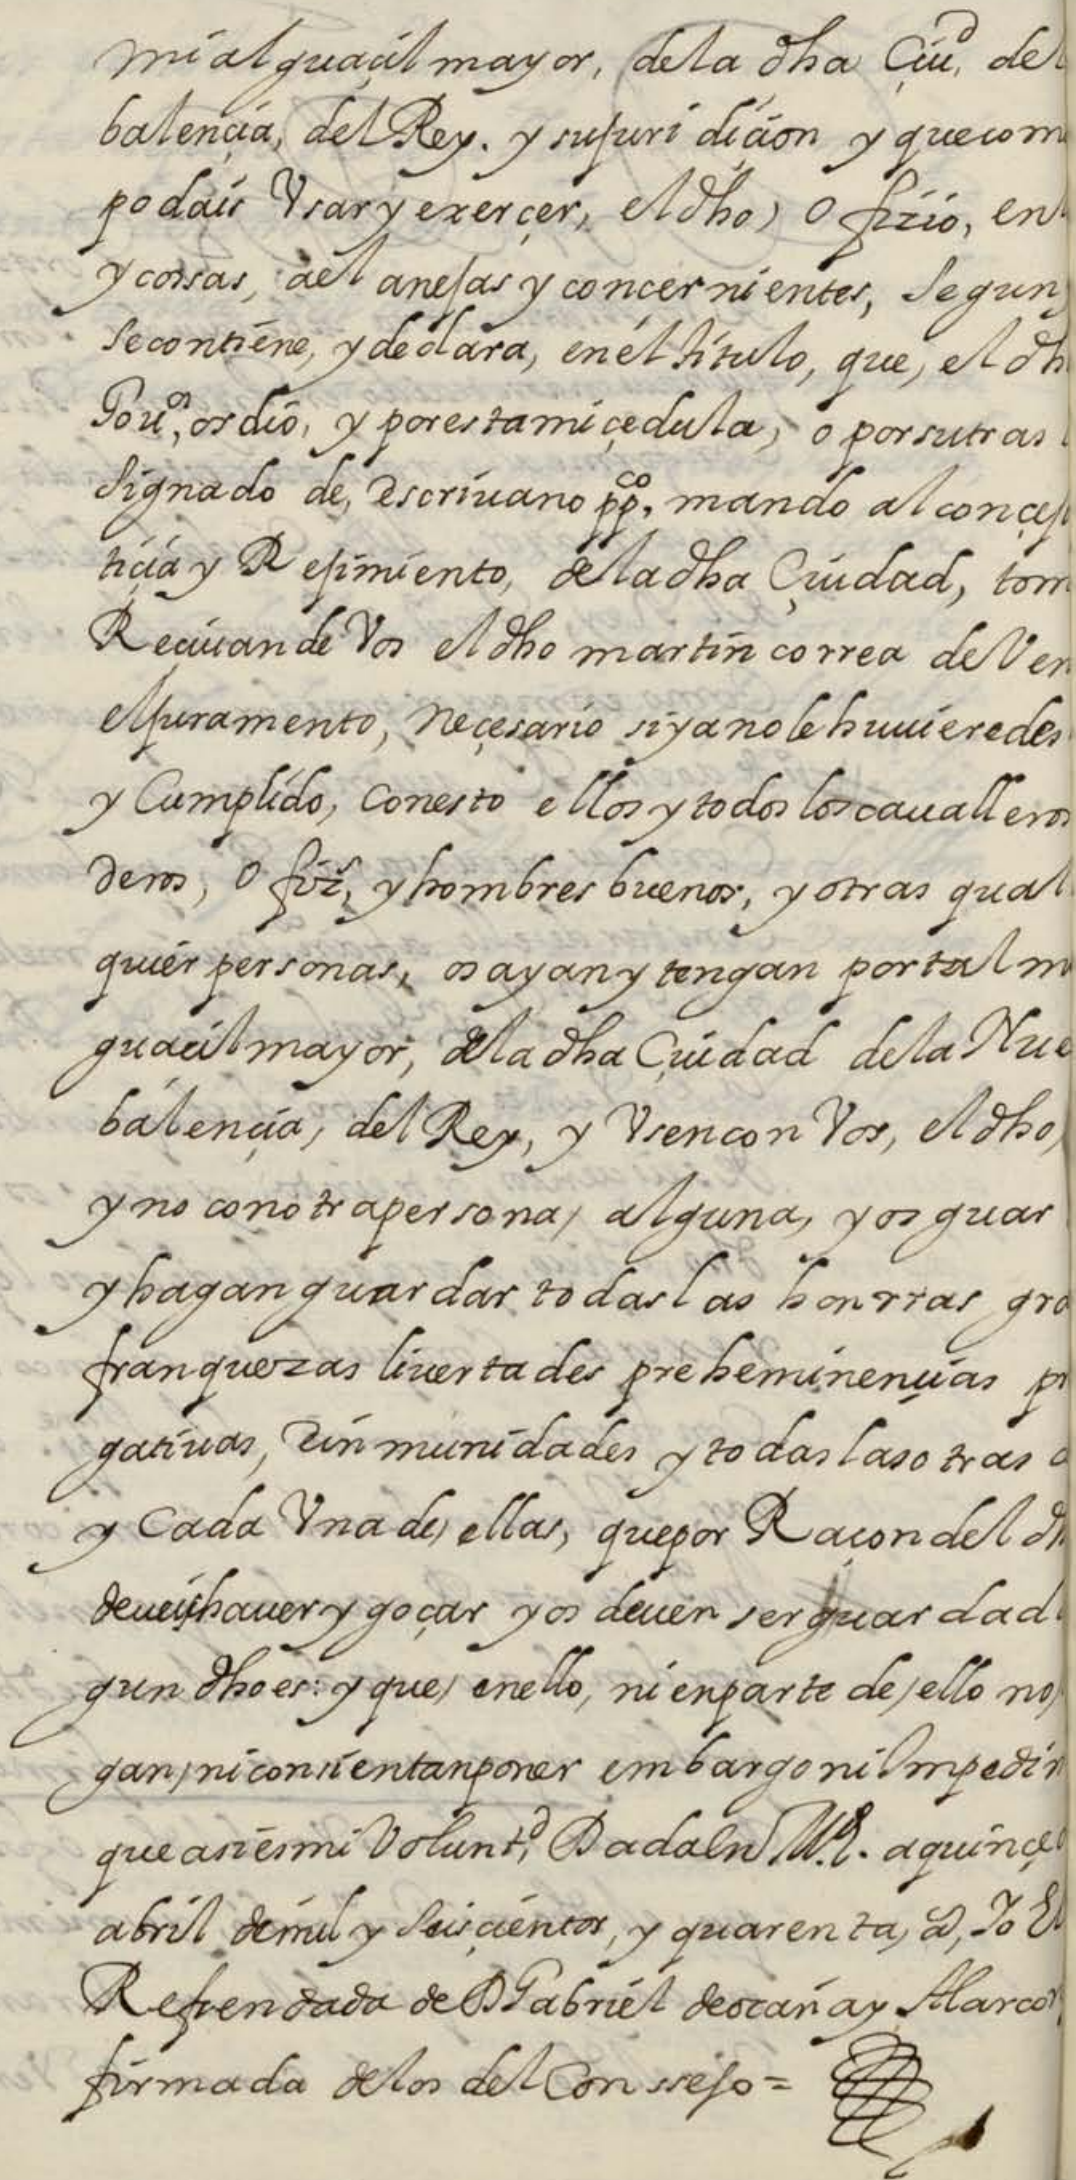 mi alguaçil mayor, de la dha Çiud, de l
balençia, del Rey. y su juri diçion y que com
podais Vsar y exerçer, el dho, offizio, en
y cossas, del anejas y conçernientes, Segun
Se contiene, y declara, en él titulo, que, el dh
Gouor, os dió, y por esta mi çedula, o por su tras
Signado de, escriuano ppco, mando al conçej
tiçia y Regimiento, de la dha Çiudad, tom
Reçiuan de Vos el dho martin correa de Ver
el juramento, Neçesario si ya no le huuieredes
y Cumplido, Con esto ellos y todos los caualleros
deros, offizs, y hombres buenos, y otras qual
quier personas, os ayan y tengan por tal m
guaçil mayor, de la dha Çiudad de la Nue
balençia, del Rey, y Vsen con Vos, el dho,
y no con otra persona, alguna, y os guar
y hagan guardar todas las honrras gra
franquezas liuertades preheminençias pr
gatiuas, e inmunidades y todas las otras c
y Cada Vna de, ellas, que por Raçon del dh
deueis hauer y goçar y os deuen ser guardad
gun dho es: y que, en ello, ni en parte de, ello no,
gan, ni consientan poner embargo ni Impedim
que asi es mi Voluntd, Dada en Md. a quinçe
abril de mil y Seisçientos, y quarenta, as, Yo El
Refrendada de D Gabriél de ocaña y Alarcon
firmada de los del Conssejo =